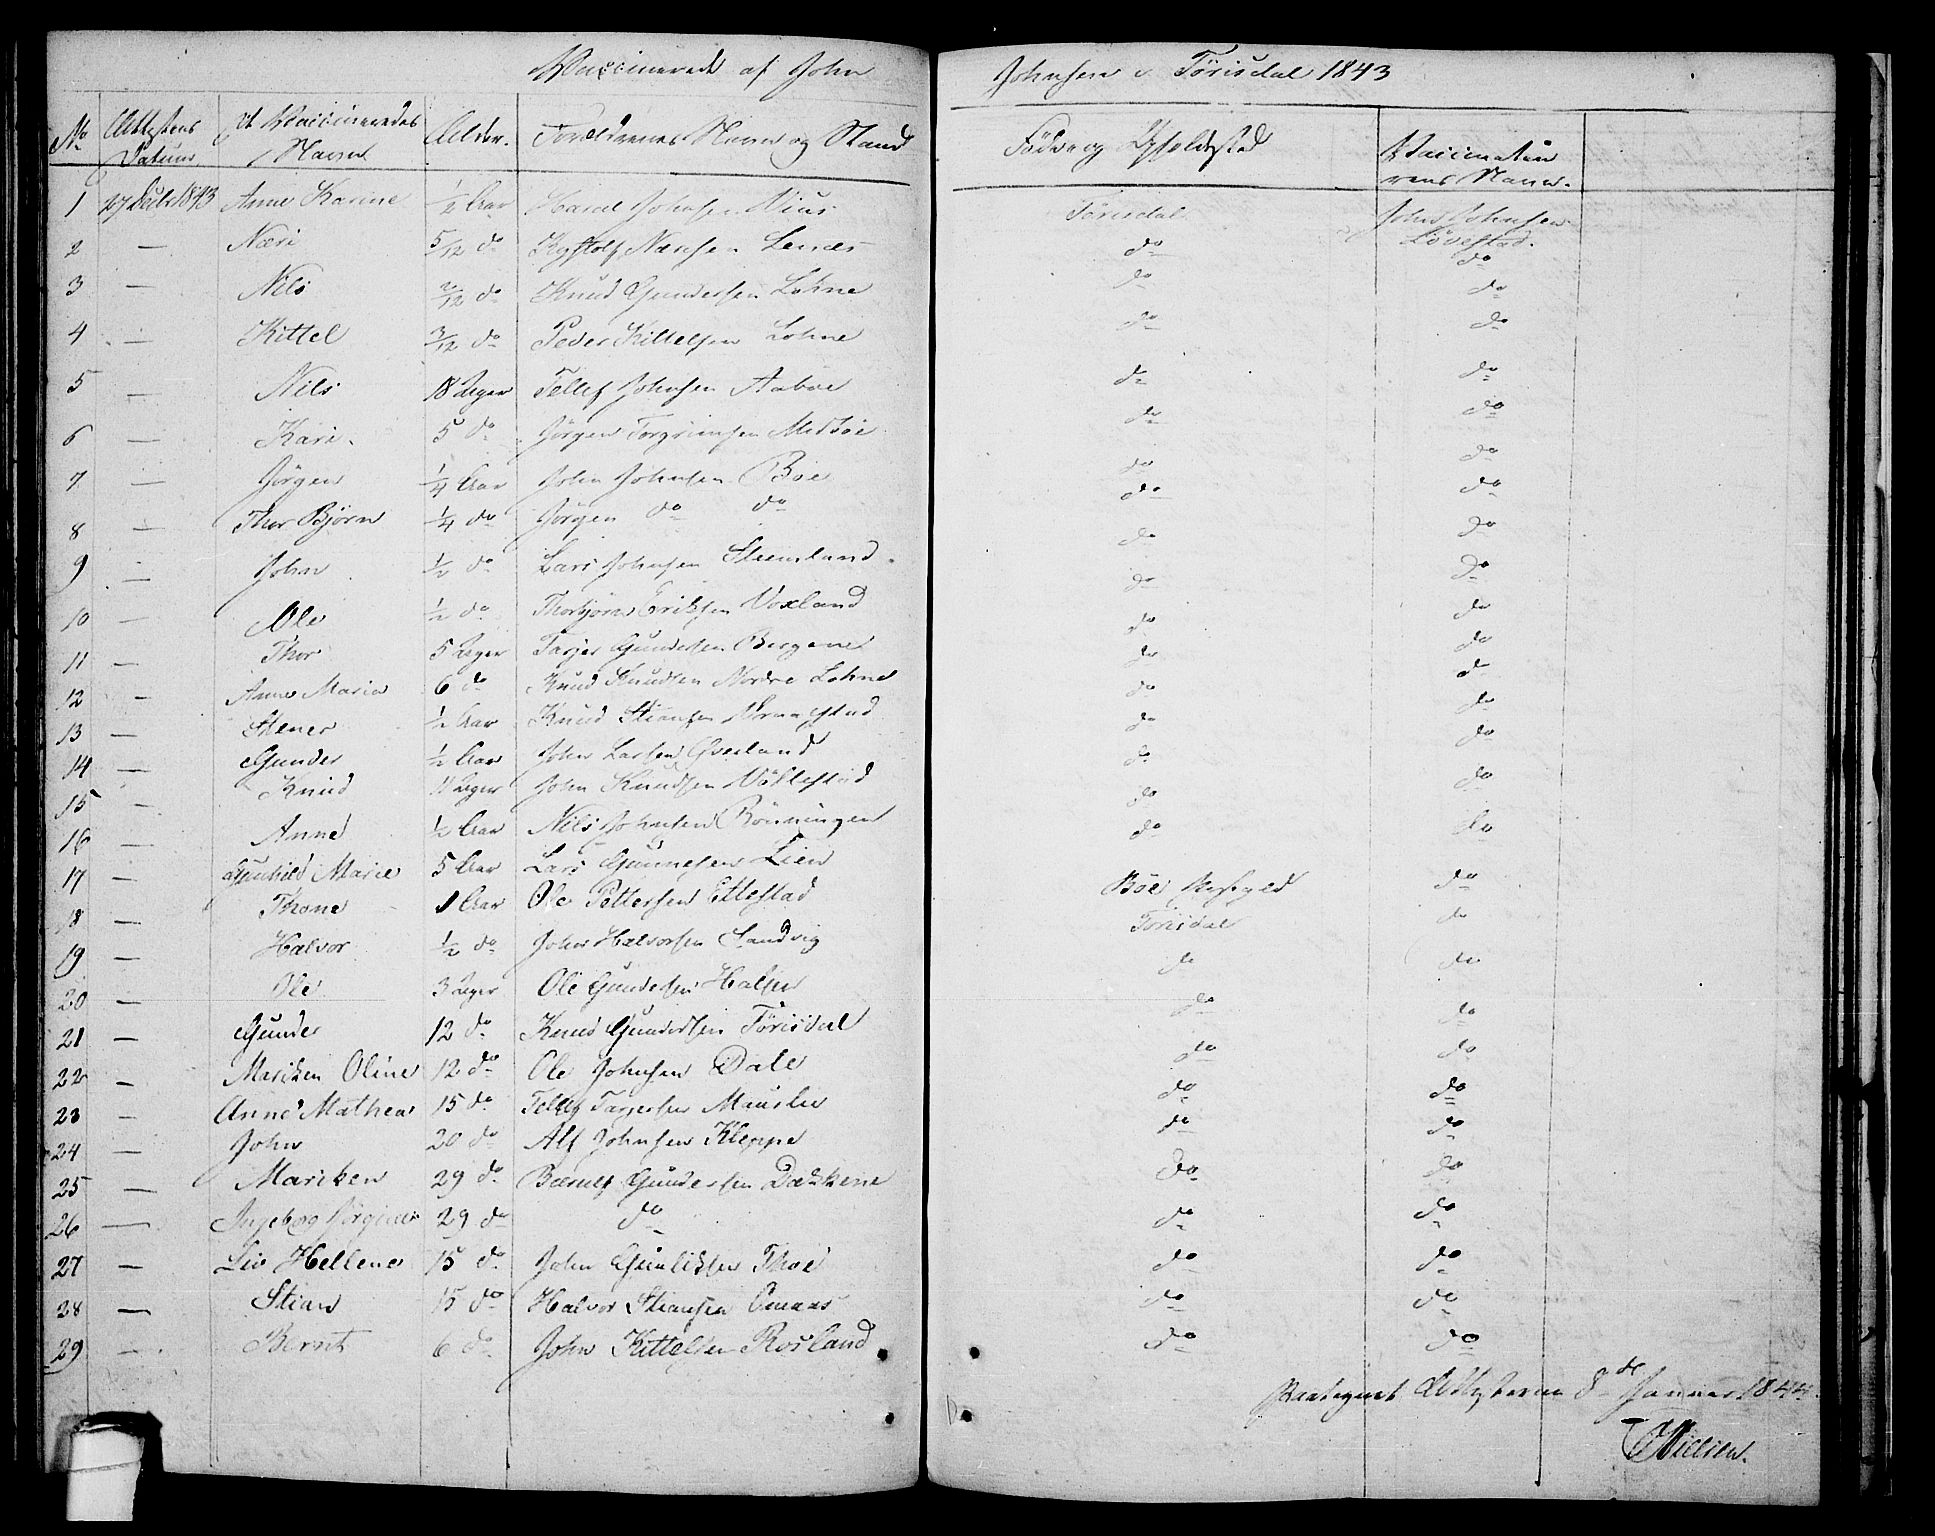 Vaccinerede af John Johnsen i Tørisdal 1843
No Attestens Datum De Vaccineredes Navn Alder. Forældrenes Navn og Stand Føde og Opholdssted Vaccinateurens Navn.
1 27 Decbr 1843 Anne Karine 1/2 Aar Johnsen Tørisdal John Johnsen Lövestad.
2 — Næri 5/12 do Næresen Lenæs do do
3 — Nils 2/12 do Knud Gundersen Lohne do do
4 — Kittel 3/12 do Peder Kittelsen Lohne do do
5 — Nils 18 Uger Tellef Johnsen Aaboe do do
6 — Kari. 5 do Jörgen Torgrimsen Medböe do do
7 — Jörgen 1/4 Aar John Johnsen Böe do do
8 — Thor Björn 1/4 do Jörgen do do do do
9 — John 1/2 do Lars Johnsen Steensland. do do
10 — Ole 1/2 do Thorbjörn Eriksen Voxland do do
11 — Thor 5 Uger Tarjer Gundersen Bergene do do
12 — Anne Maria 6 do Knud Knudsen Nordre Lohne do do
13 — Stener 1/2 Aar Knud Stiansen do do
14 — Gunder 1/2 Aar John Larsen Qveland do do
15 — Knud 11 Uger John Knudsen Völlestad do do
16 — Anne 1/2 Aar Nils Johnsen Rönningen do do
17 — Gunhild Marie 5 Aar Lars Gunnesen Lien Böe Præstegjeld do
18 — Thone 1 Aar Ole Pettersen Ettestad Törisdal do
19 — Halvor 1/2 do John Halvorsen Sandvig do do
20 — Ole 3 Uger Ole Gundersen Halsen do do
21 — Gunder 12 do Knud Gundersen Törisdal do do
22 — Mariken Oline 12 do Ole Johnsen Dale do do
23 — Anne Mathea 15 do Tellef Tarjersen do do
24 — John 20 do Alf Johnsen Kleppe do do
25 — Mariken 29 do Gundersen Dækkene do do
26 — Ingeborg Jörgine 29 do do do do
27 — Liv Hellene 15 do John Gunliksen Thoe do do
28 — Stian 15 do Halvor Stiansen Omaas do do
29 — Bernt 6 do John Kittelsen Rosland do do
Paategnet Attesteren 8de Januar 1844.
Nielsen.